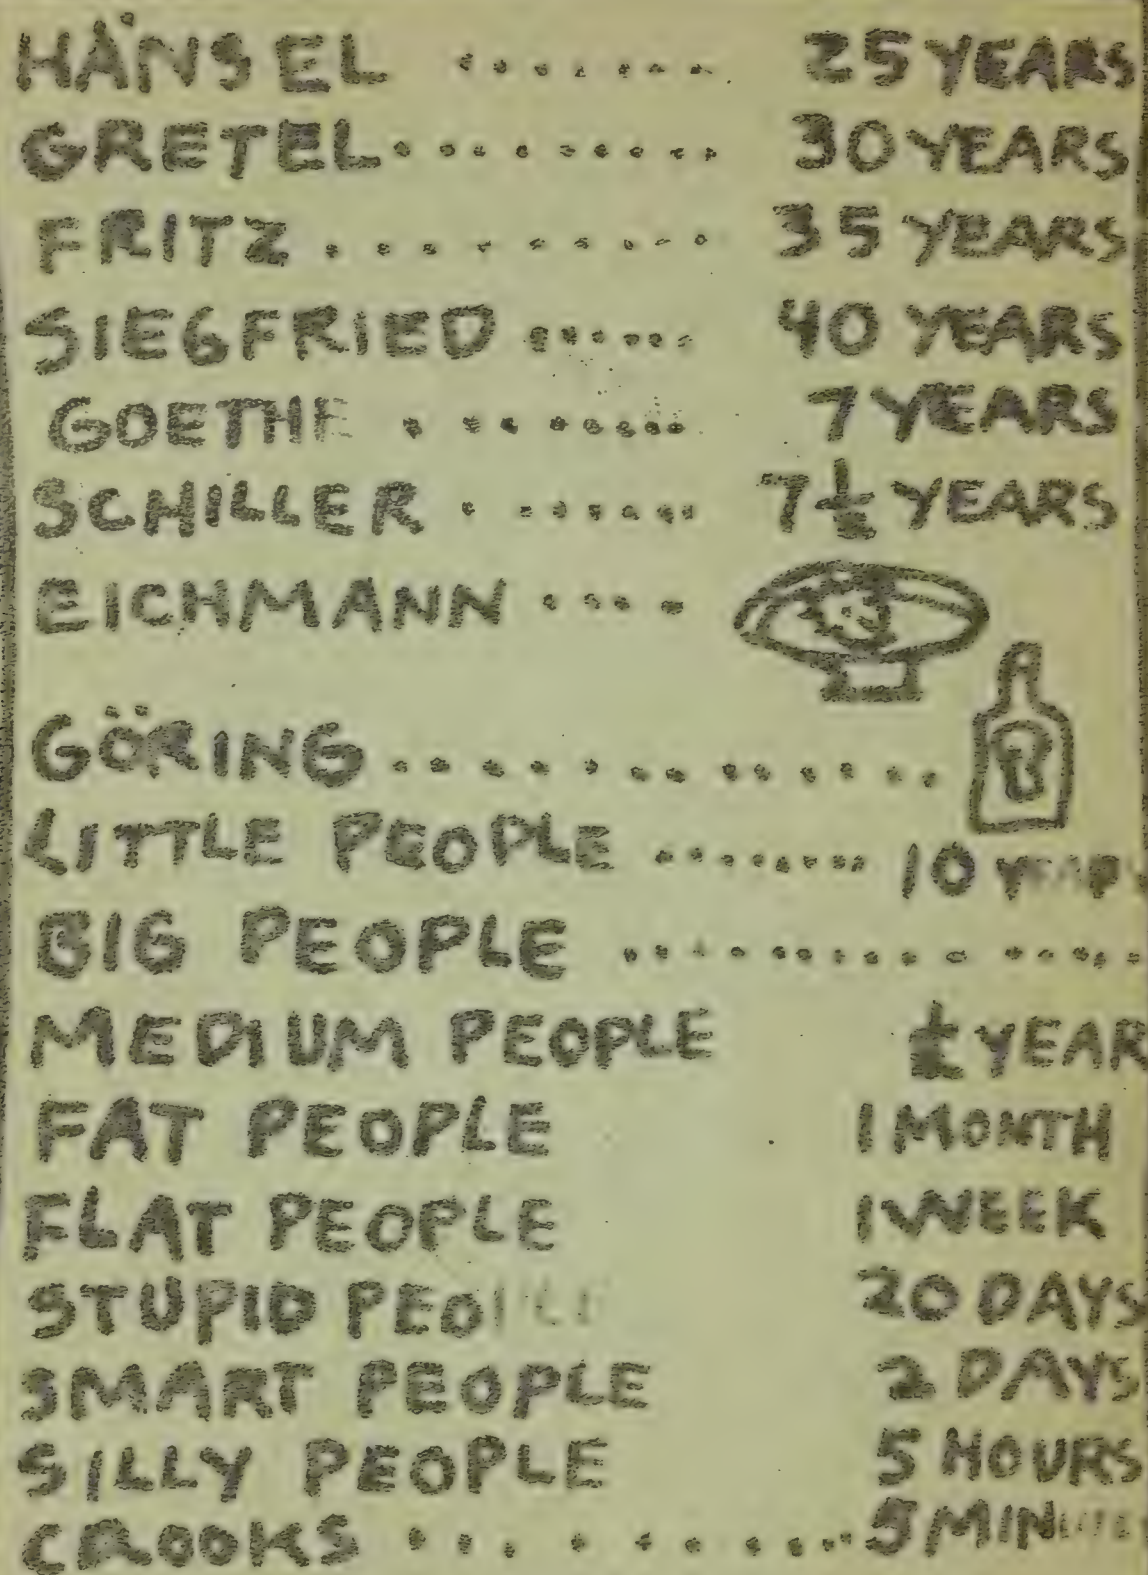 HÅNSEL ........ 25 YEARS
GRETEL......... 30 YEARS
FRITZ ......... 35 YEARS
SIEGFRIED ...... 40 YEARS
GOETHE ........ 7 YEARS
SCHILLER ...... 7½ YEARS
EICHMANN ....
GÖRING ............
LITTLE PEOPLE ........ 10 YEARS
BIG PEOPLE .............
MEDIUM PEOPLE ½ YEAR
FAT PEOPLE 1 MONTH
FLAT PEOPLE 1 WEEK
STUPID PEOPLE 20 DAYS
SMART PEOPLE 2 DAYS
SILLY PEOPLE 5 HOURS
CROOKS ......... 5 MIN